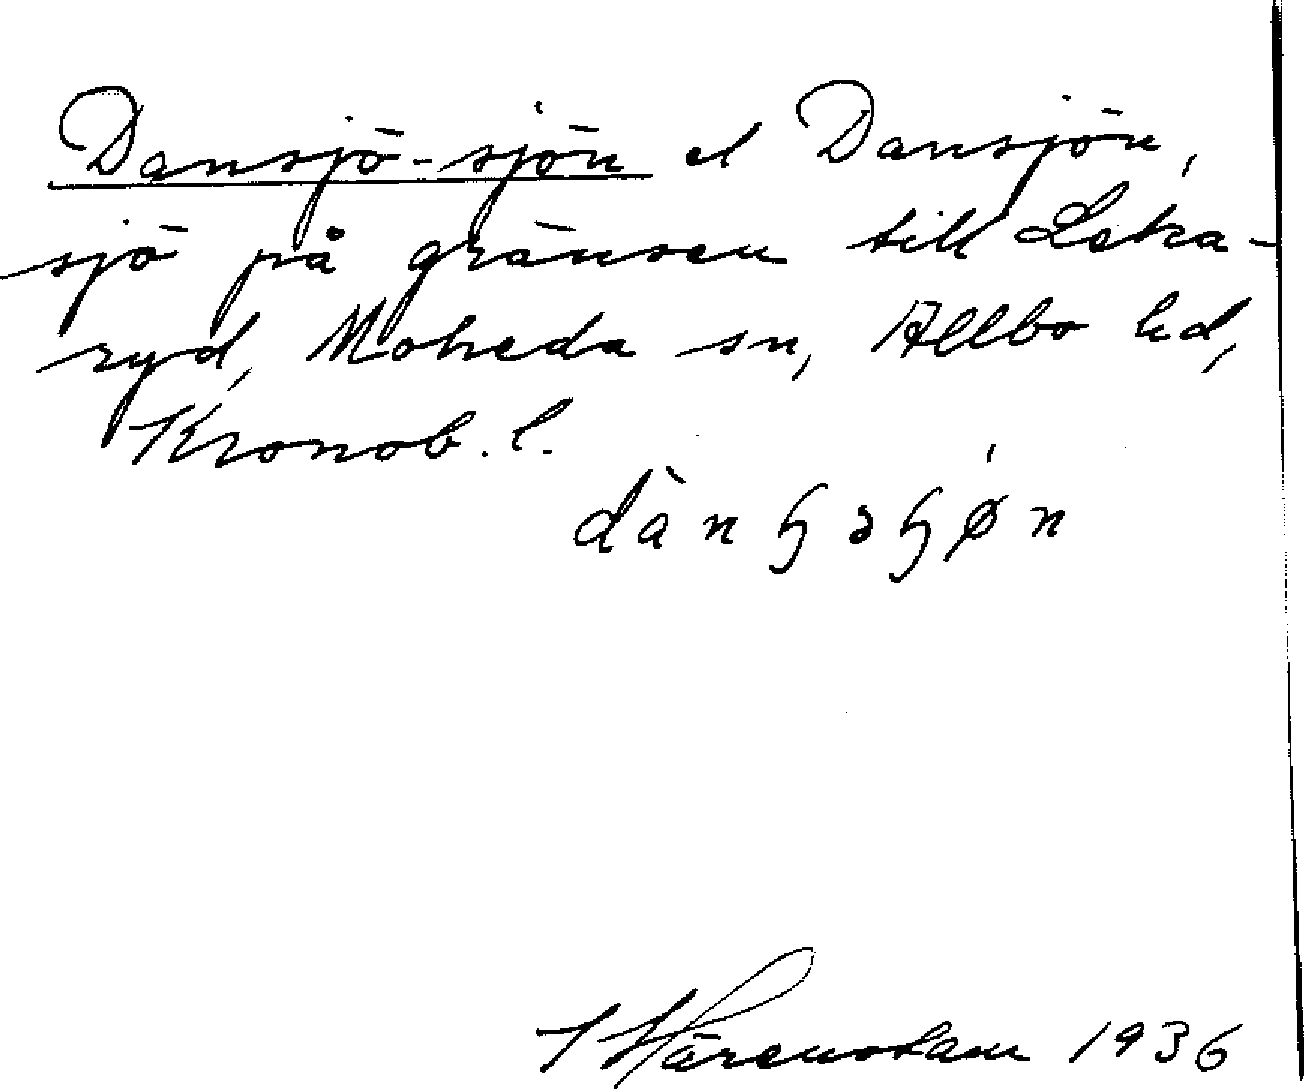 Dansjö-sjön el Dansjön,
sjö på gränsen till Leka-
ryd, Moheda sn, Allbo hd,
Kronob. l.
dànɧəɧøn
Härenstam 1936